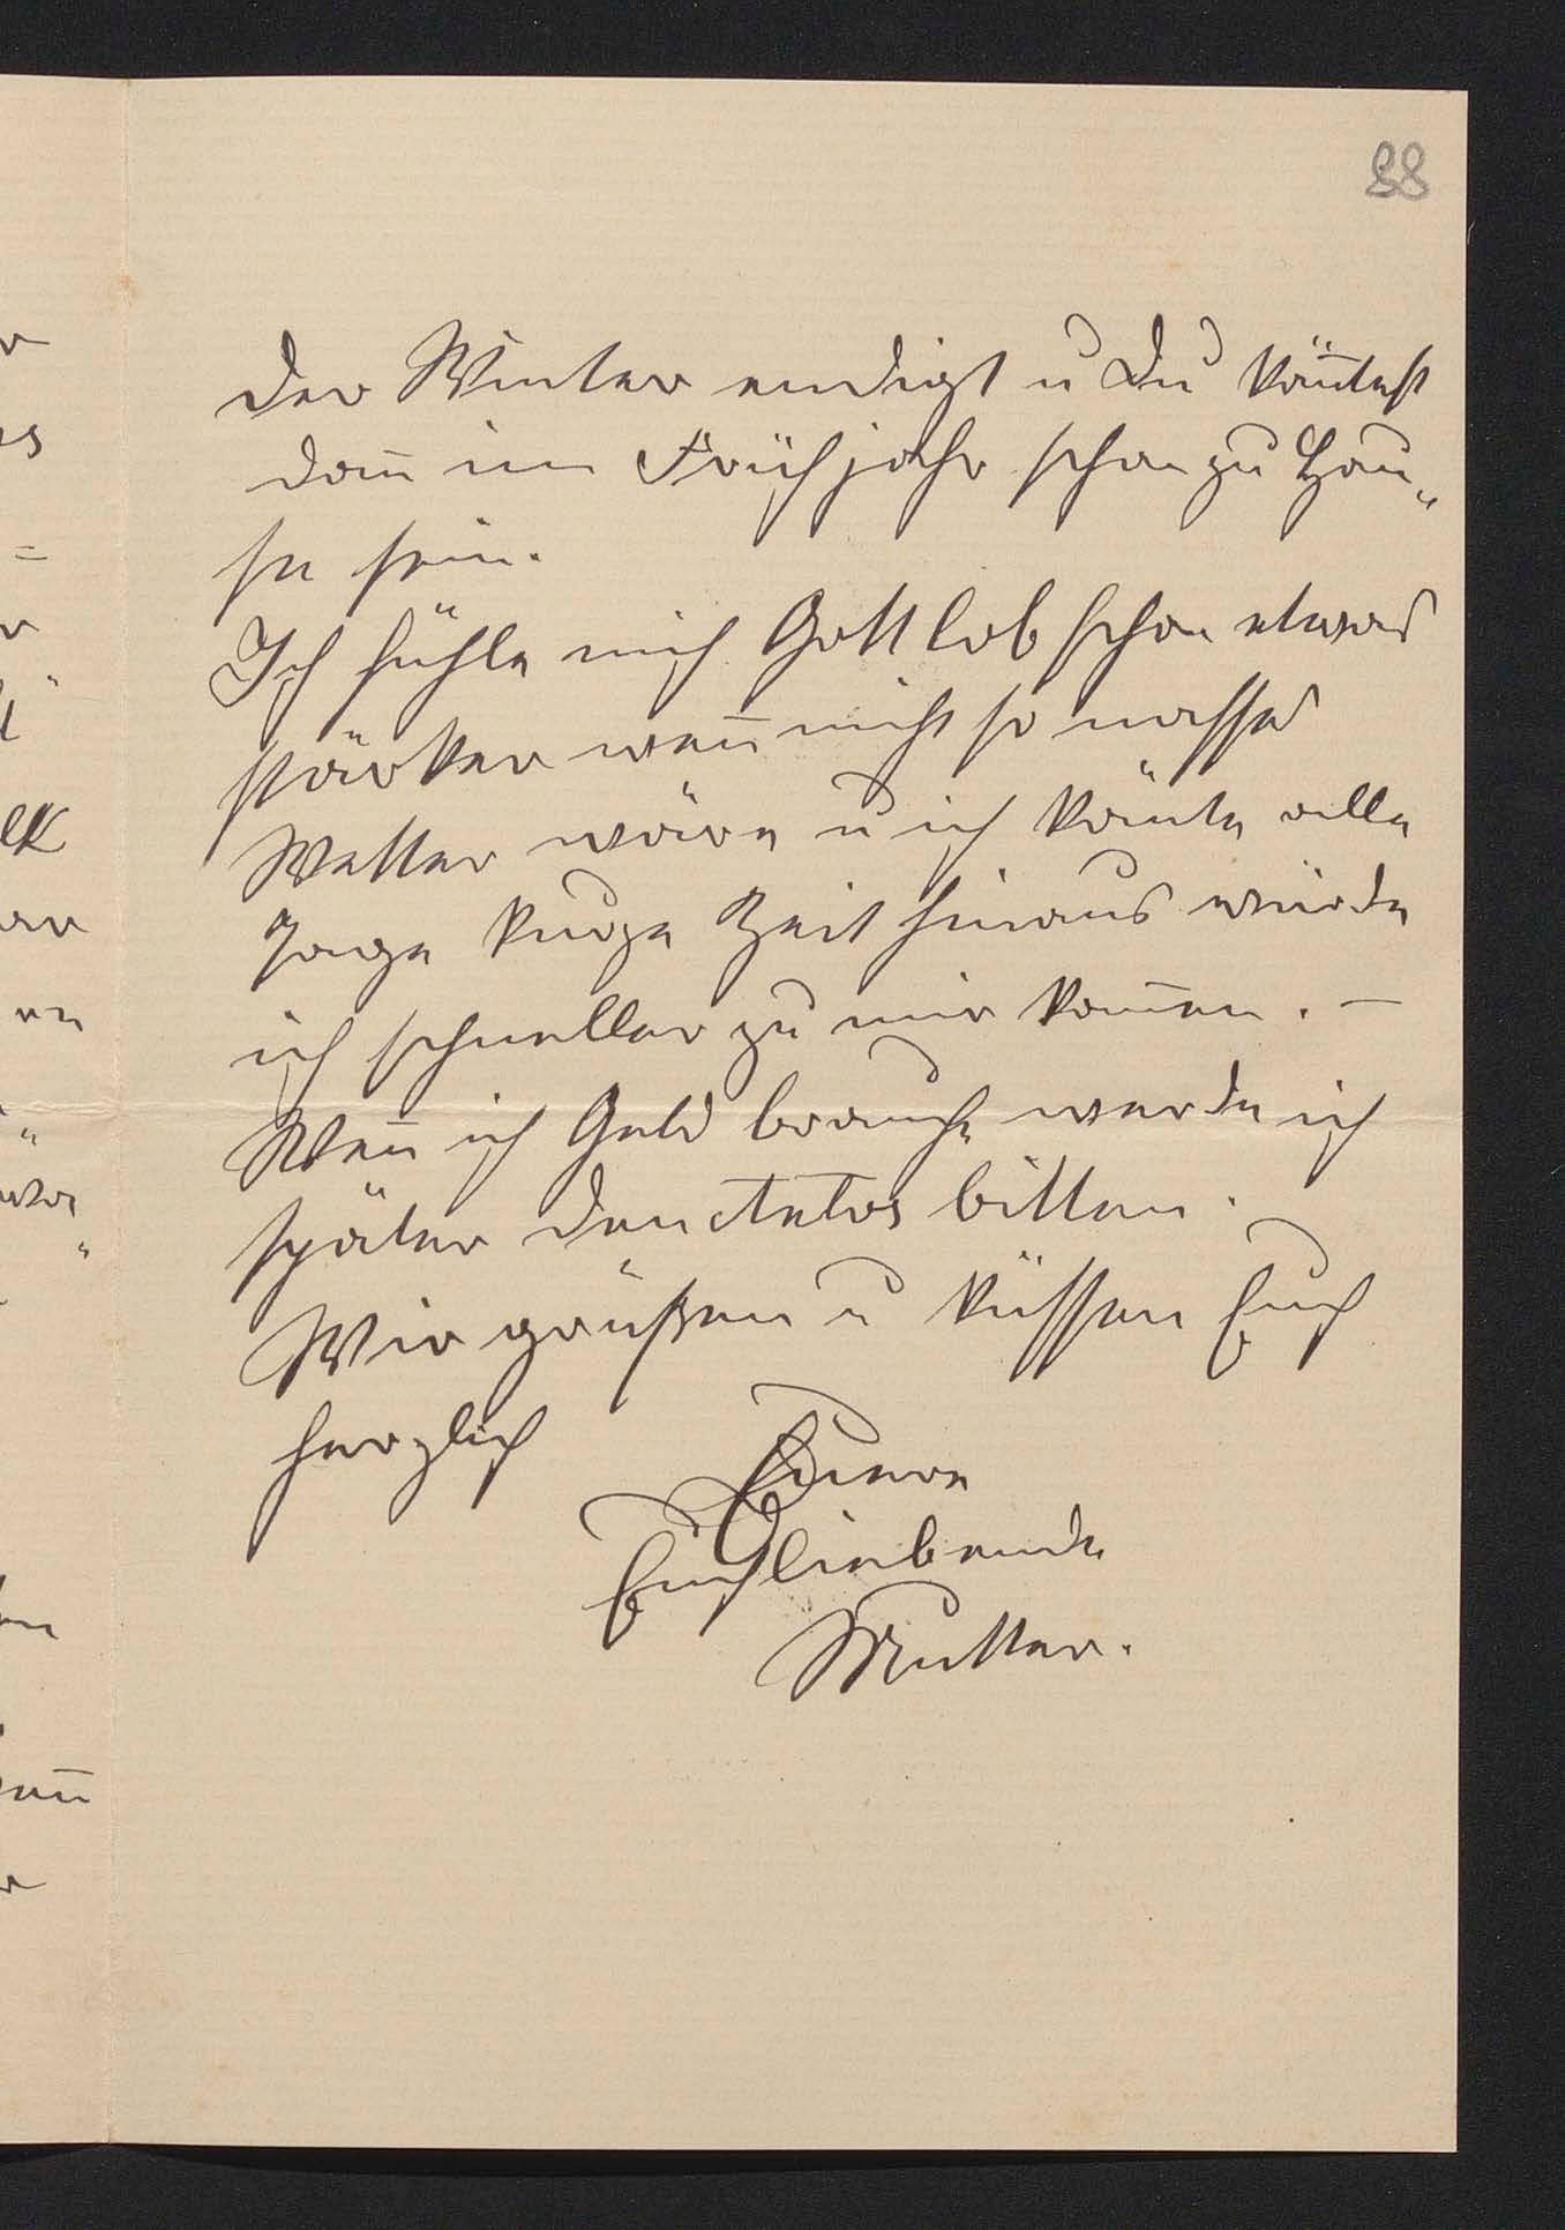 88
der Winter endigt u Du kön̄test
dan̄ im Frühjahr schon zu Hau„
se sein.
Ich fühle mich Gottlob schon etwas
stärker wen̄ nicht so nasses
Wetter wäre u ich kön̄te alle
Tage kurze Zeit hinaus würde
ich schneller zu mir kom̄en. —
Wen̄ ich Geld brauche werde ich
später den Tatos bitten.
Wir grüßen u küssen Euch
herzlich
Euere
Euchliebende
Mutter.